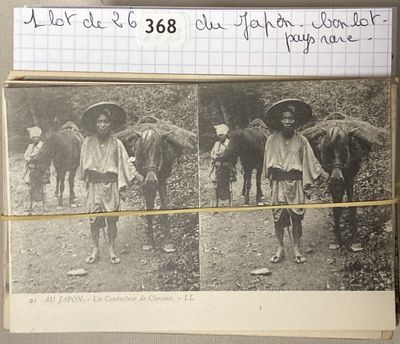 1 lot de 26 368 du Japon - bon lot -
pays rare -
21 AU JAPON. - Un Conducteur de Chevaux. - LL.